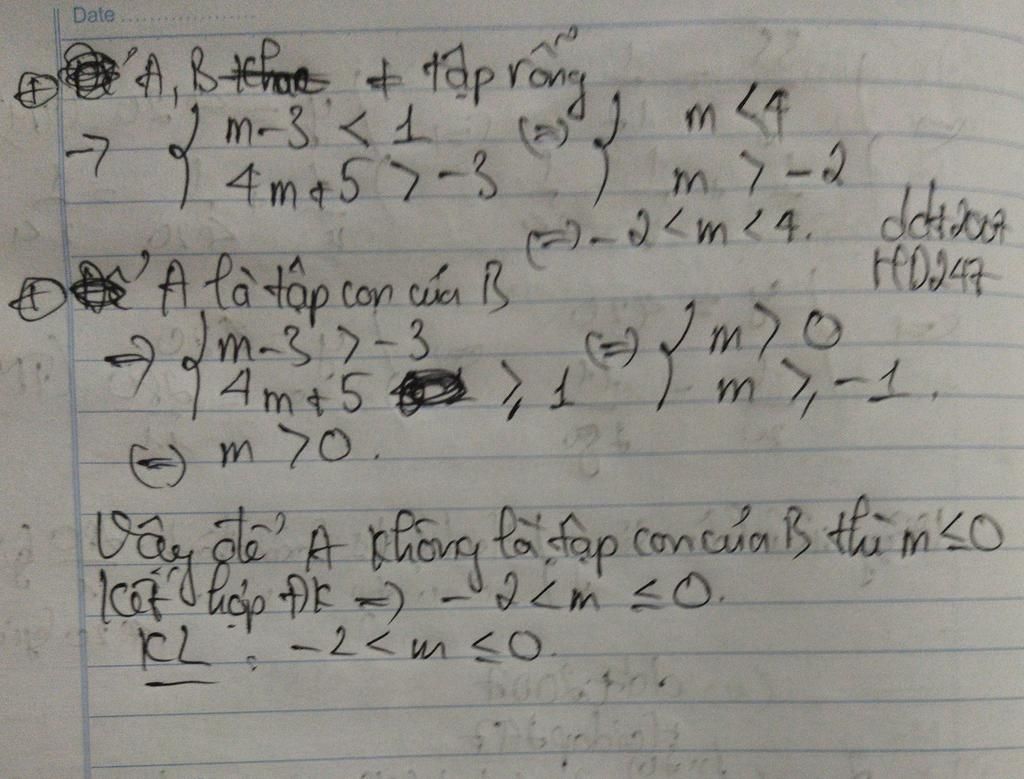 Date
⊕ A, B ≠ tập rỗng
→ { m-3 < 1 (=) { m < 4
4m+5 > -3 m > -2
(=) -2 < m < 4.
ddt2007
HD247
⊕ A là tập con của B
=) { m-3 > -3 (=) { m > 0
4m+5 ≥ 1 m ≥ -1.
(=) m > 0.
Vậy để A không là tập con của B thì m ≤ 0
Kết hợp ĐK =) -2 < m ≤ 0.
KL : -2 < m ≤ 0.